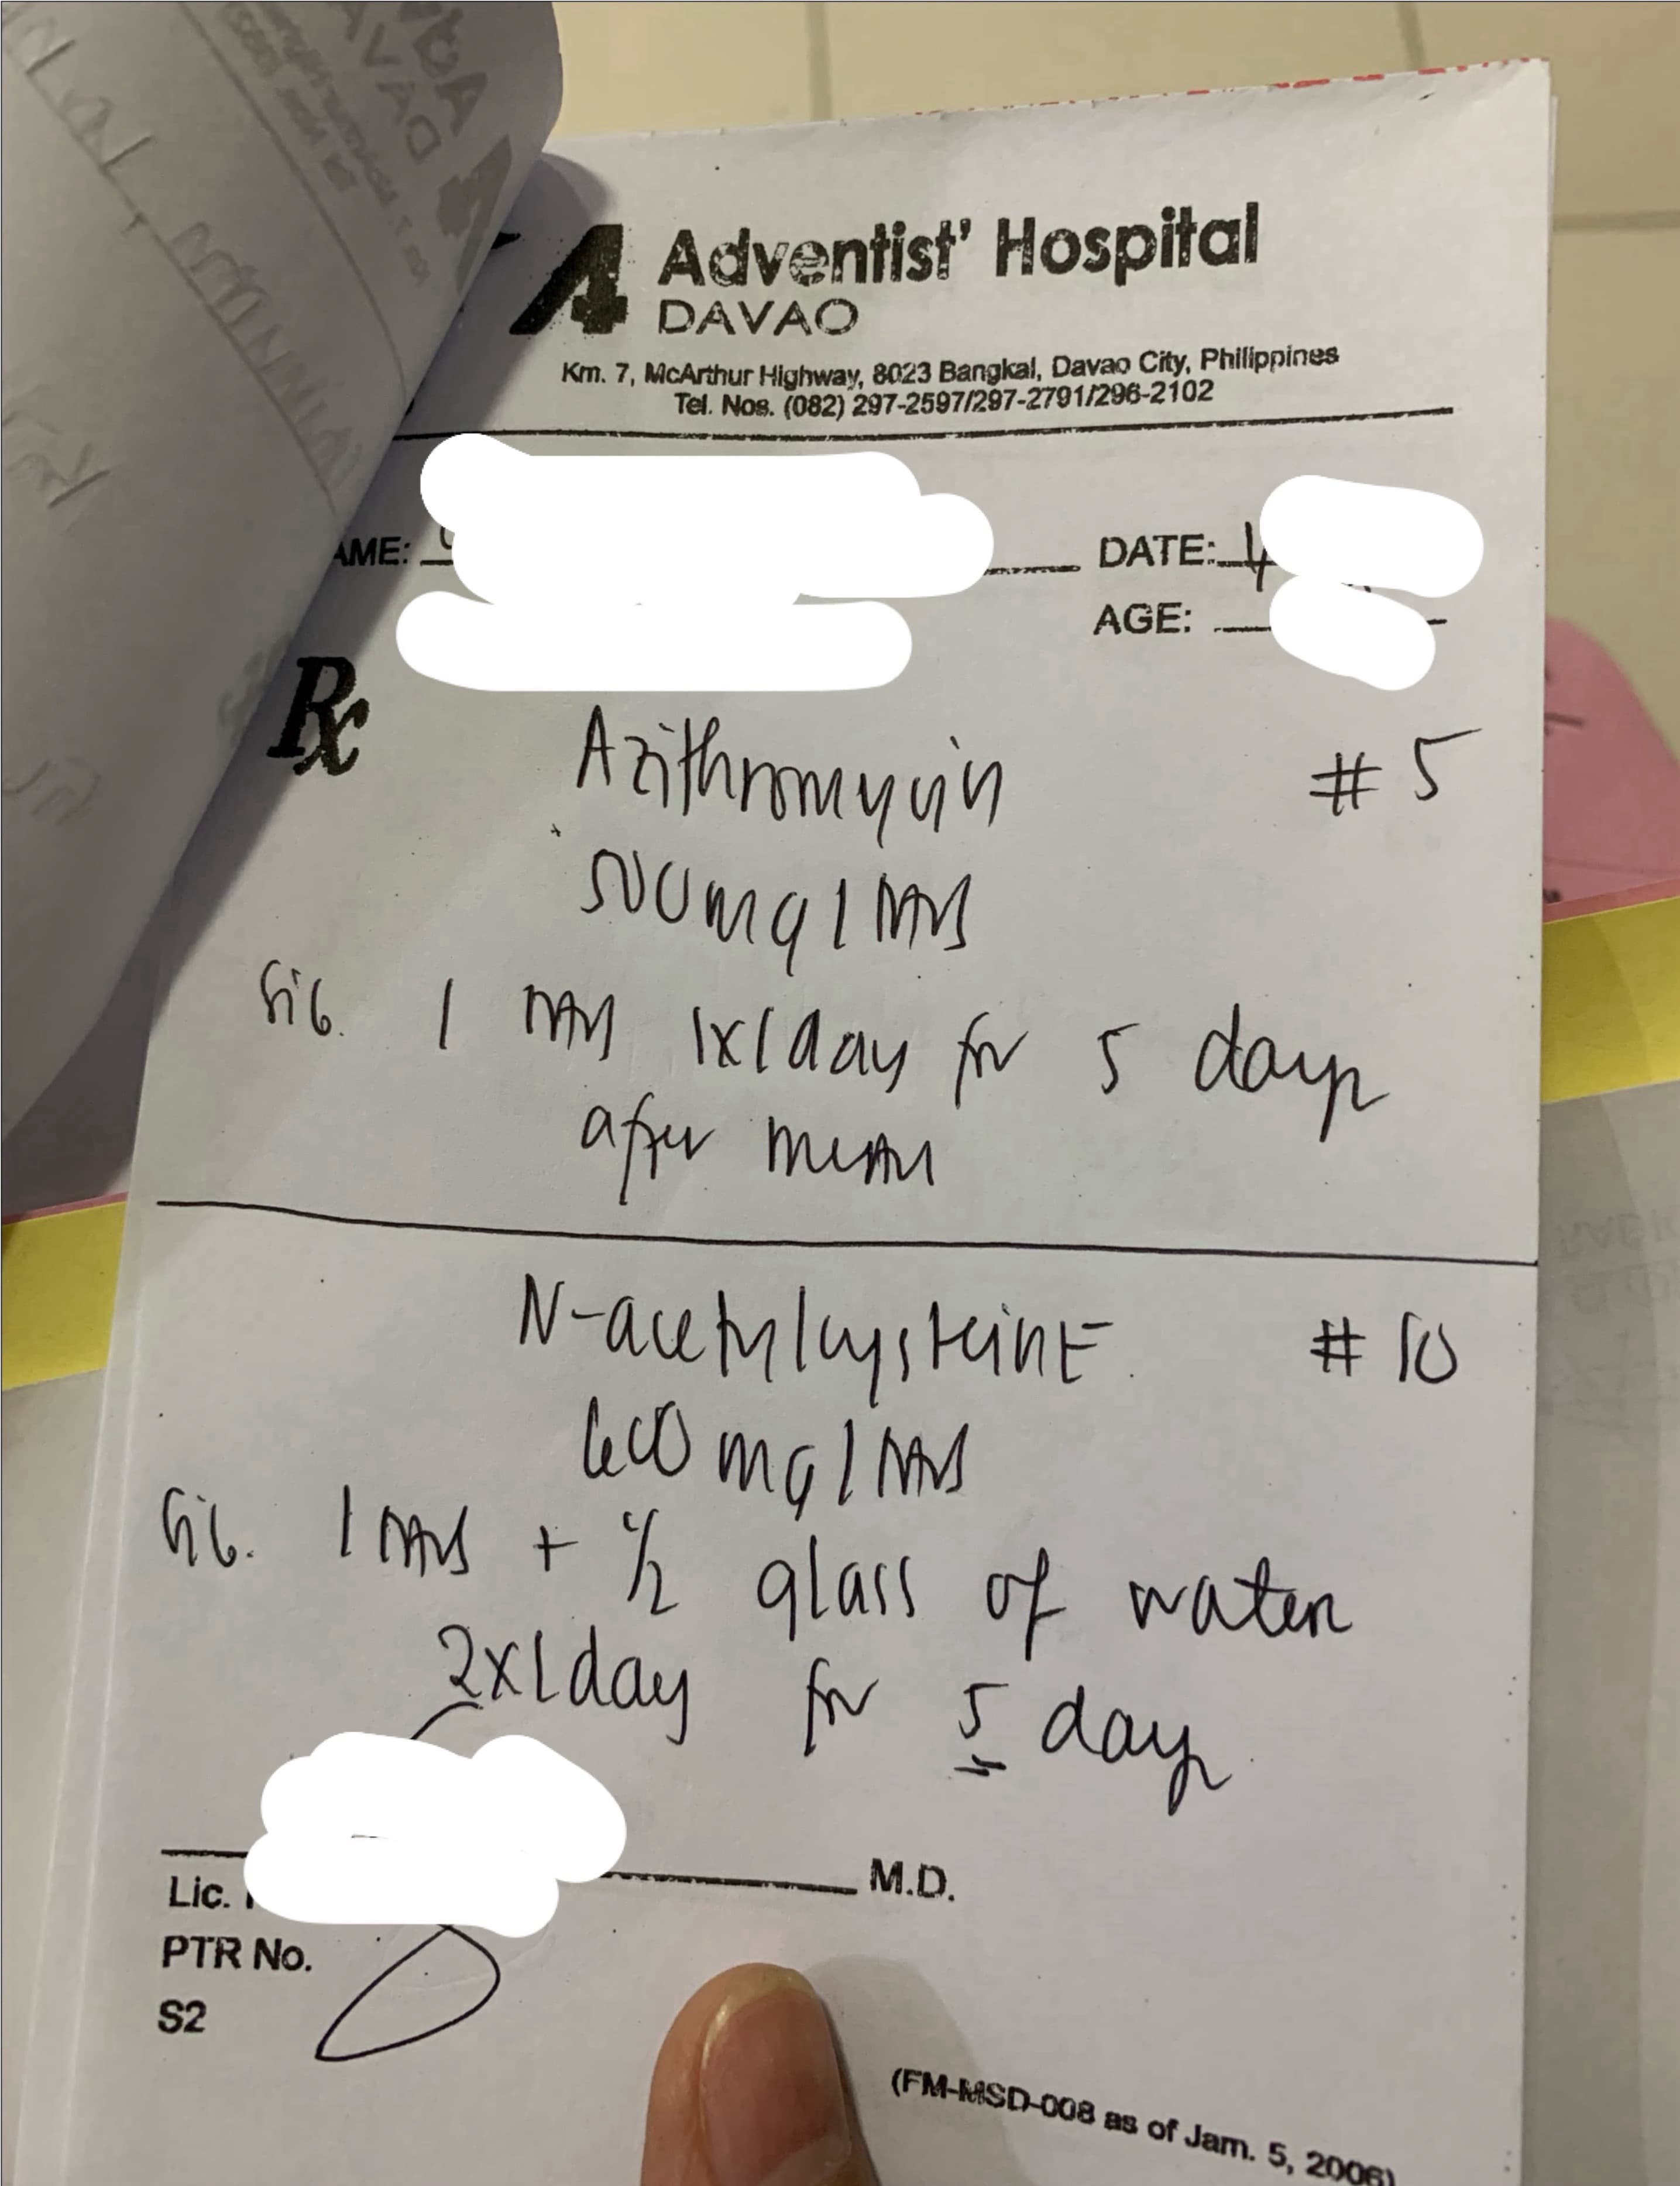 Adventist' Hospital
DAVAO
Km. 7, McArthur Highway, 8023 Bangkal, Davao City, Philippines
Tel. Nos. (082) 297-2597/297-2791/296-2102
AME:
DATE: 4
AGE:
Rx
Azithromycin #5
500mg/tab
Sig. 1 tab 1x/day for 5 days
after meal
N-acetylcysteine #10
600mg/tab
Sig. 1 tab + 1/2 glass of water
2x/day for 5 days
M.D.
Lic.
PTR No.
S2
(FM-MSD-008 as of Jam. 5, 2006)